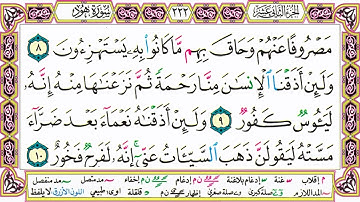 الجزء الثاني عشر ٢٢٢ سورة هود
مَصْرُوفًا عَنْهُمْ وَحَاقَ بِهِم مَّا كَانُوا۟ بِهِۦ يَسْتَهْزِءُونَ ٨
وَلَئِنْ أَذَقْنَا ٱلْإِنسَٰنَ مِنَّا رَحْمَةً ثُمَّ نَزَعْنَٰهَا مِنْهُ إِنَّهُۥ
لَيَـُٔوسٌ كَفُورٌ ٩ وَلَئِنْ أَذَقْنَٰهُ نَعْمَآءَ بَعْدَ ضَرَّآءَ
مَسَّتْهُ لَيَقُولَنَّ ذَهَبَ ٱلسَّيِّـَٔاتُ عَنِّىٓ إِنَّهُۥ لَفَرِحٌ فَخُورٌ ١٠